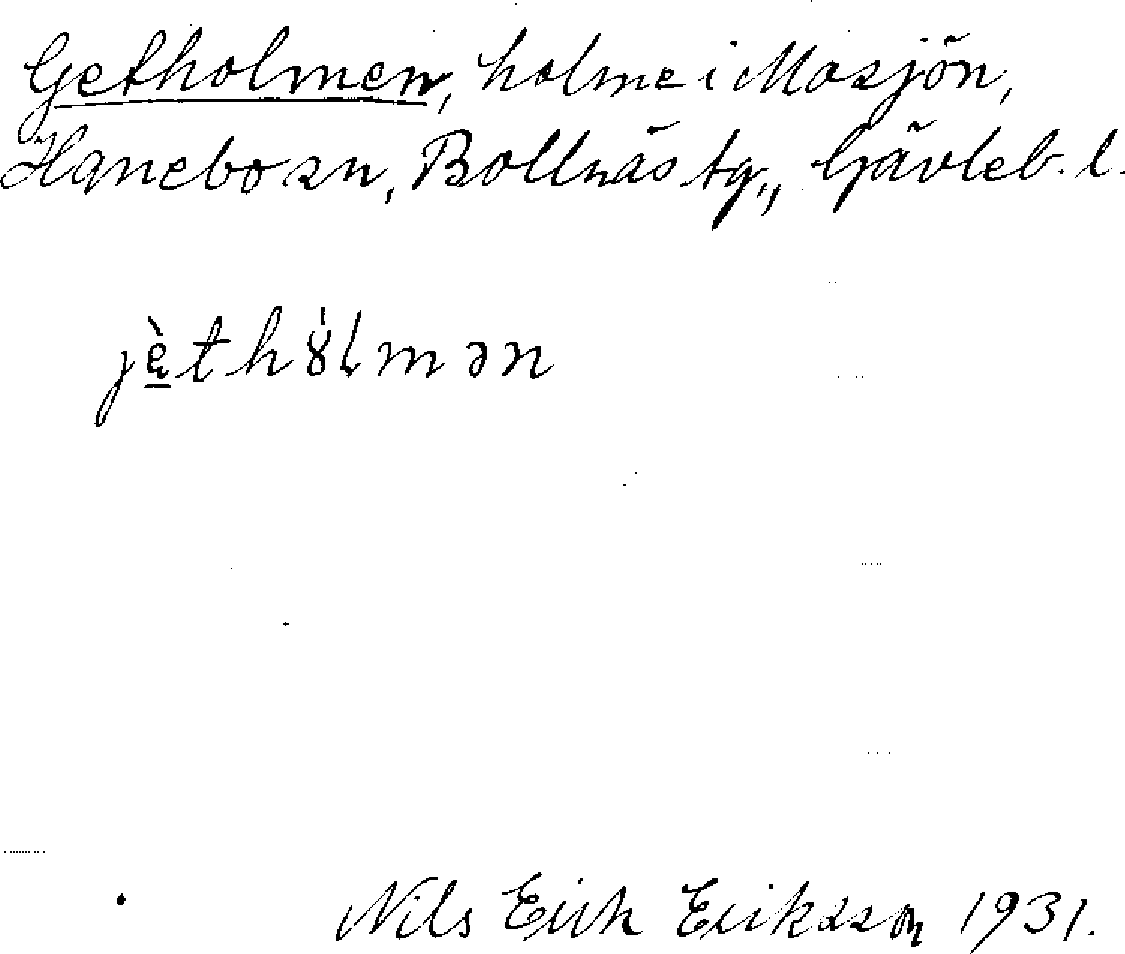 Getholmen, holme i Mosjön,
Hanebo sn, Bollnäs tg., Gävleb. l.
jèthɤ́lmən
Nils Erik Eriksson 1931.